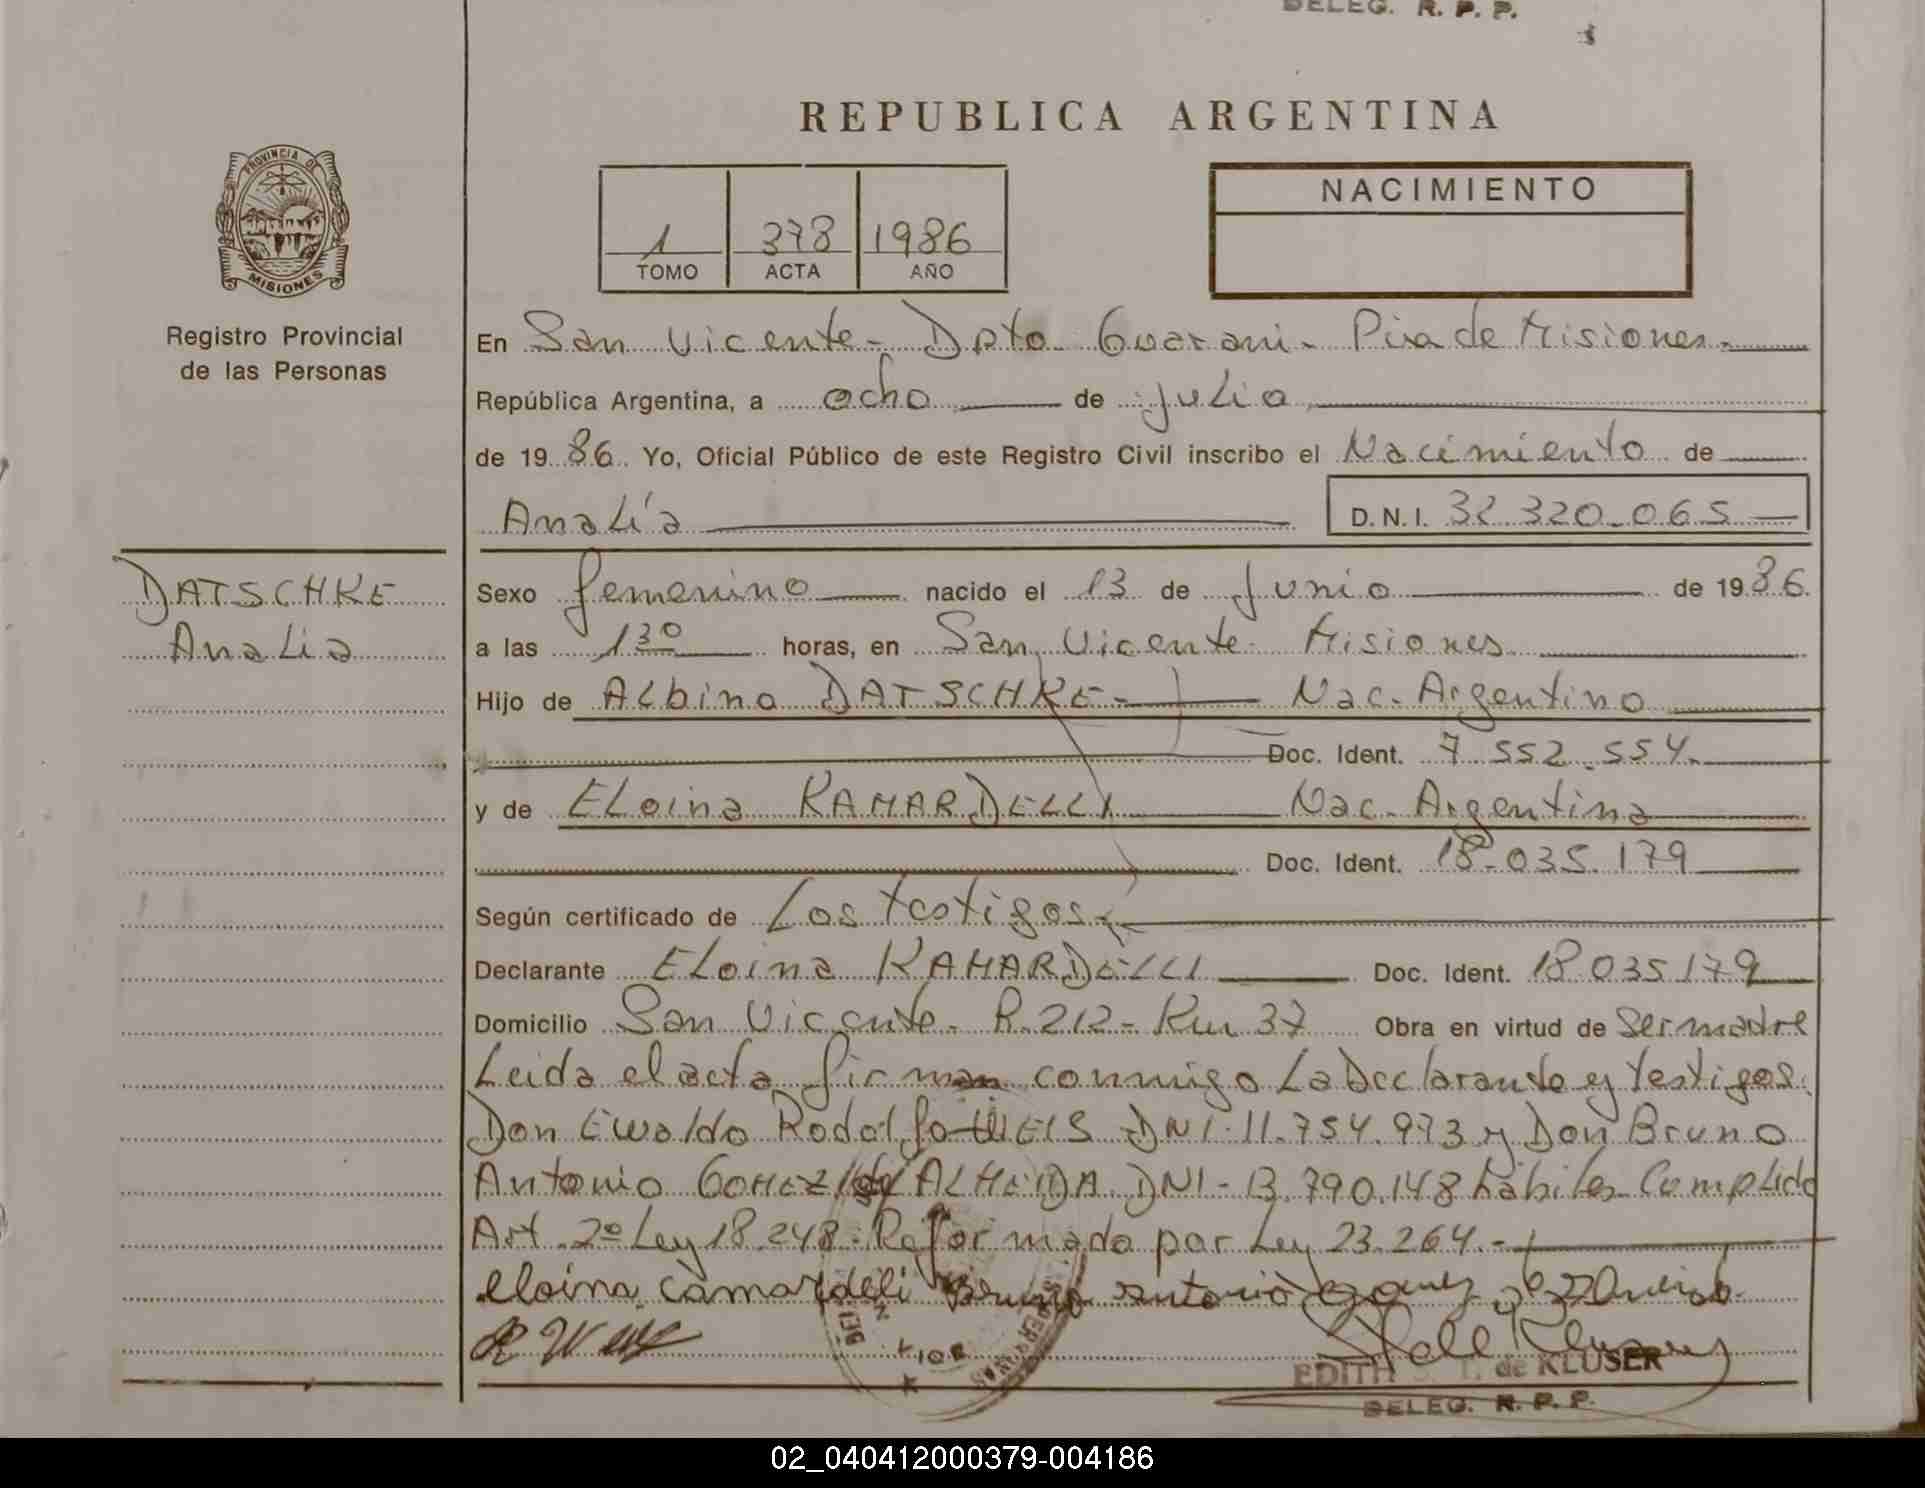 DELEG. R. P. P.
REPUBLICA ARGENTINA
PROVINCIA DE
MISIONES
Registro Provincial
de las Personas
1 378 1986
TOMO ACTA AÑO
NACIMIENTO
En San Vicente - Dpto Guarani - Pcia de Misiones
República Argentina, a ocho de julio
de 19 86 Yo, Oficial Público de este Registro Civil inscribo el Nacimiento de
Analía D.N.I. 32 320.065
DATSCHKE
Analia
Sexo femenino nacido el 13 de Junio de 19 86.
a las 13º horas, en San Vicente Misiones
Hijo de Albino DATSCHKE - Nac. Argentino
Doc. Ident. 7.552.554.
y de ELoina KAMARDELLI Nac. Argentina
Doc. Ident. 18.035.179
Según certificado de Los testigos
Declarante ELoina KAMARDELLI Doc. Ident. 18.035.179
Domicilio San Vicente - R. 212 - Km 37 Obra en virtud de ser madre
Leida el acta firman conmigo La Declarante y testigos.
Don Ewaldo Rodolfo WEIS DNI-11.754.973 y Don Bruno
Antonio GOMEZ de ALMEIDA DNI-13.790.148 habiles. Cumplido
Art. 2º Ley 18.248. Reformada por Ley 23.264.-
eloina camardeli Bruno antonio gomez
EDITH de KLUSER
DELEG. R. P. P.
02_040412000379-004186